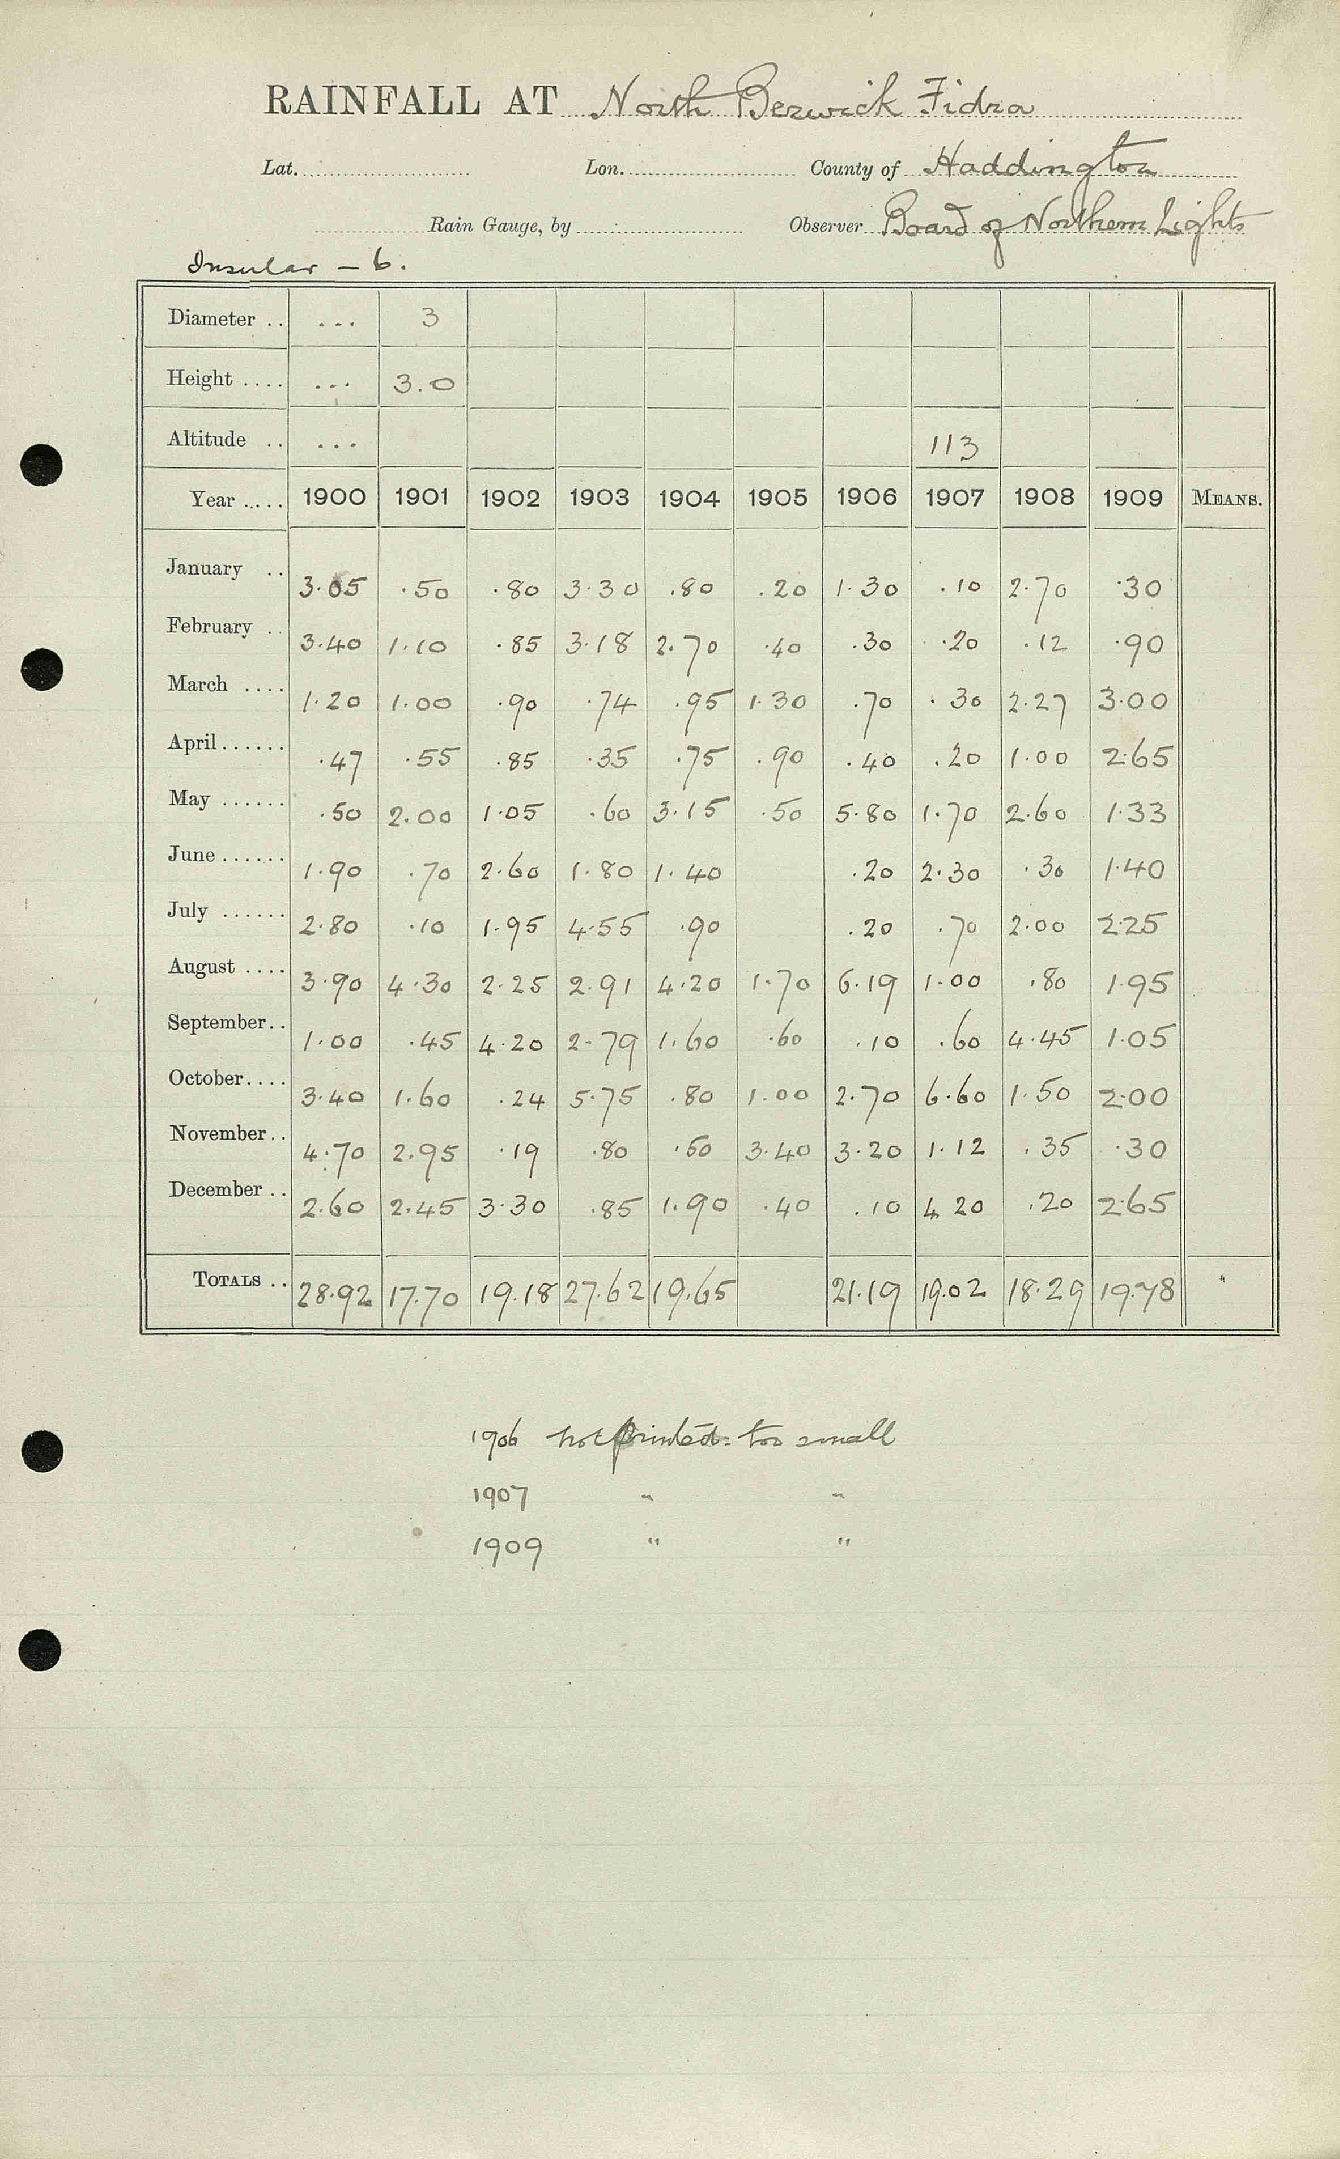 RAINFALL AT North Berwick Fidra
Lat. Lon. County of Haddington
Rain Gauge, by Observer Board of Northern Lights
Insular - 6.
Diameter .. ... 3
Height .... ... 3.0
Altitude .. ... 113
Year .... 1900 1901 1902 1903 1904 1905 1906 1907 1908 1909 MEANS.
January .. 3.05 .50 .80 3.30 .80 .20 1.30 .10 2.70 .30
February .. 3.40 1.10 .85 3.18 2.70 .40 .30 .20 .12 .90
March .... 1.20 1.00 .90 .74 .95 1.30 .70 .30 2.27 3.00
April...... .47 .55 .85 .35 .75 .90 .40 .20 1.00 2.65
May ...... .50 2.00 1.05 .60 3.15 .50 5.80 1.70 2.60 1.33
June...... 1.90 .70 2.60 1.80 1.40 .20 2.30 .30 1.40
July ...... 2.80 .10 1.95 4.55 .90 .20 .70 2.00 2.25
August .... 3.90 4.30 2.25 2.91 4.20 1.70 6.19 1.00 .80 1.95
September.. 1.00 .45 4.20 2.79 1.60 .60 .10 .60 4.45 1.05
October.... 3.40 1.60 .24 5.75 .80 1.00 2.70 6.60 1.50 2.00
November.. 4.70 2.95 .19 .80 .50 3.40 3.20 1.12 .35 .30
December .. 2.60 2.45 3.30 .85 1.90 .40 .10 4.20 .20 2.65
TOTALS .. 28.92 17.70 19.18 27.62 19.65 21.19 19.02 18.29 19.78
1906 not printed: too small
1907 " "
1909 " "